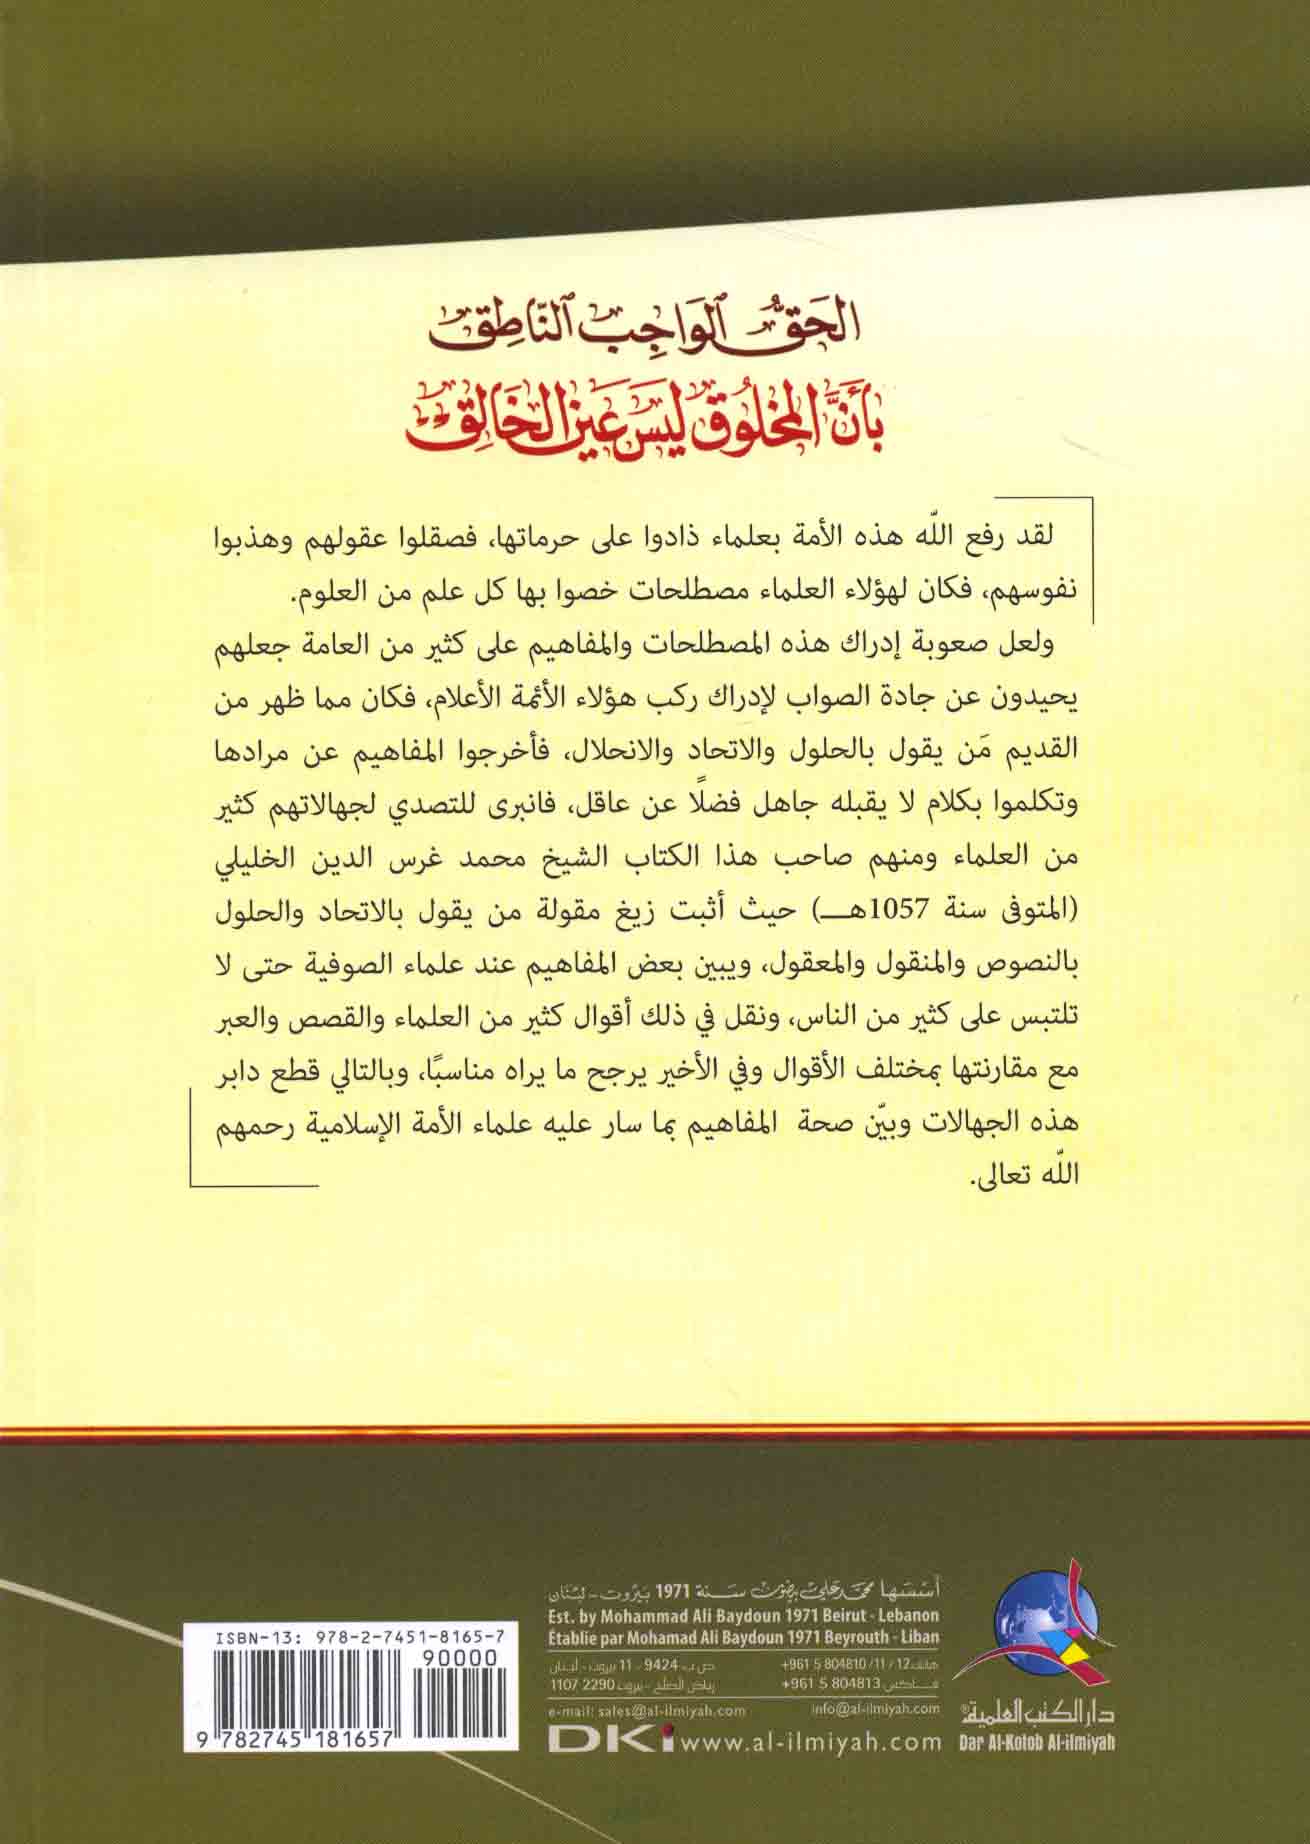 الحَقُّ الوَاجِب النَّاطِق
بأَنَّ المَخلُوق لَيسَ عَين الخَالِق
لقد رفع اللّه هذه الأمة بعلماء ذادوا على حرماتها، فصقلوا عقولهم وهذبوا
نفوسهم، فكان لهؤلاء العلماء مصطلحات خصوا بها كل علم من العلوم.
ولعل صعوبة إدراك هذه المصطلحات والمفاهيم على كثير من العامة جعلهم
يحيدون عن جادة الصواب لإدراك ركب هؤلاء الأئمة الأعلام، فكان مما ظهر من
القديم مَن يقول بالحلول والاتحاد والانحلال، فأخرجوا المفاهيم عن مرادها
وتكلموا بكلام لا يقبله جاهل فضلًا عن عاقل، فانبرى للتصدي لجهالاتهم كثير
من العلماء ومنهم صاحب هذا الكتاب الشيخ محمد غرس الدين الخليلي
(المتوفى سنة 1057هـ) حيث أثبت زيغ مقولة من يقول بالاتحاد والحلول
بالنصوص والمنقول والمعقول، ويبين بعض المفاهيم عند علماء الصوفية حتى لا
تلتبس على كثير من الناس، ونقل في ذلك أقوال كثير من العلماء والقصص والعبر
مع مقارنتها بمختلف الأقوال وفي الأخير يرجح ما يراه مناسبًا، وبالتالي قطع دابر
هذه الجهالات وبيّن صحة المفاهيم بما سار عليه علماء الأمة الإسلامية رحمهم
اللّه تعالى.
أسّسَها محمّد علي بيضون سَنة 1971 بَيْروت - لبْنان
Est. by Mohammad Ali Baydoun 1971 Beirut - Lebanon
Établie par Mohamad Ali Baydoun 1971 Beyrouth - Liban
هاتف: +961 5 804810 /11 / 12 ص ب: 9424 - 11 بيروت - لبنان
فاكس: +961 5 804813 رياض الصلح - بيروت 2290 1107
e-mail: sales@al-ilmiyah.com info@al-ilmiyah.com
DKi www.al-ilmiyah.com
دار الكتب العلمية®
Dar Al-Kotob Al-ilmiyah
ISBN-13: 978-2-7451-8165-7
90000
9 782745 181657